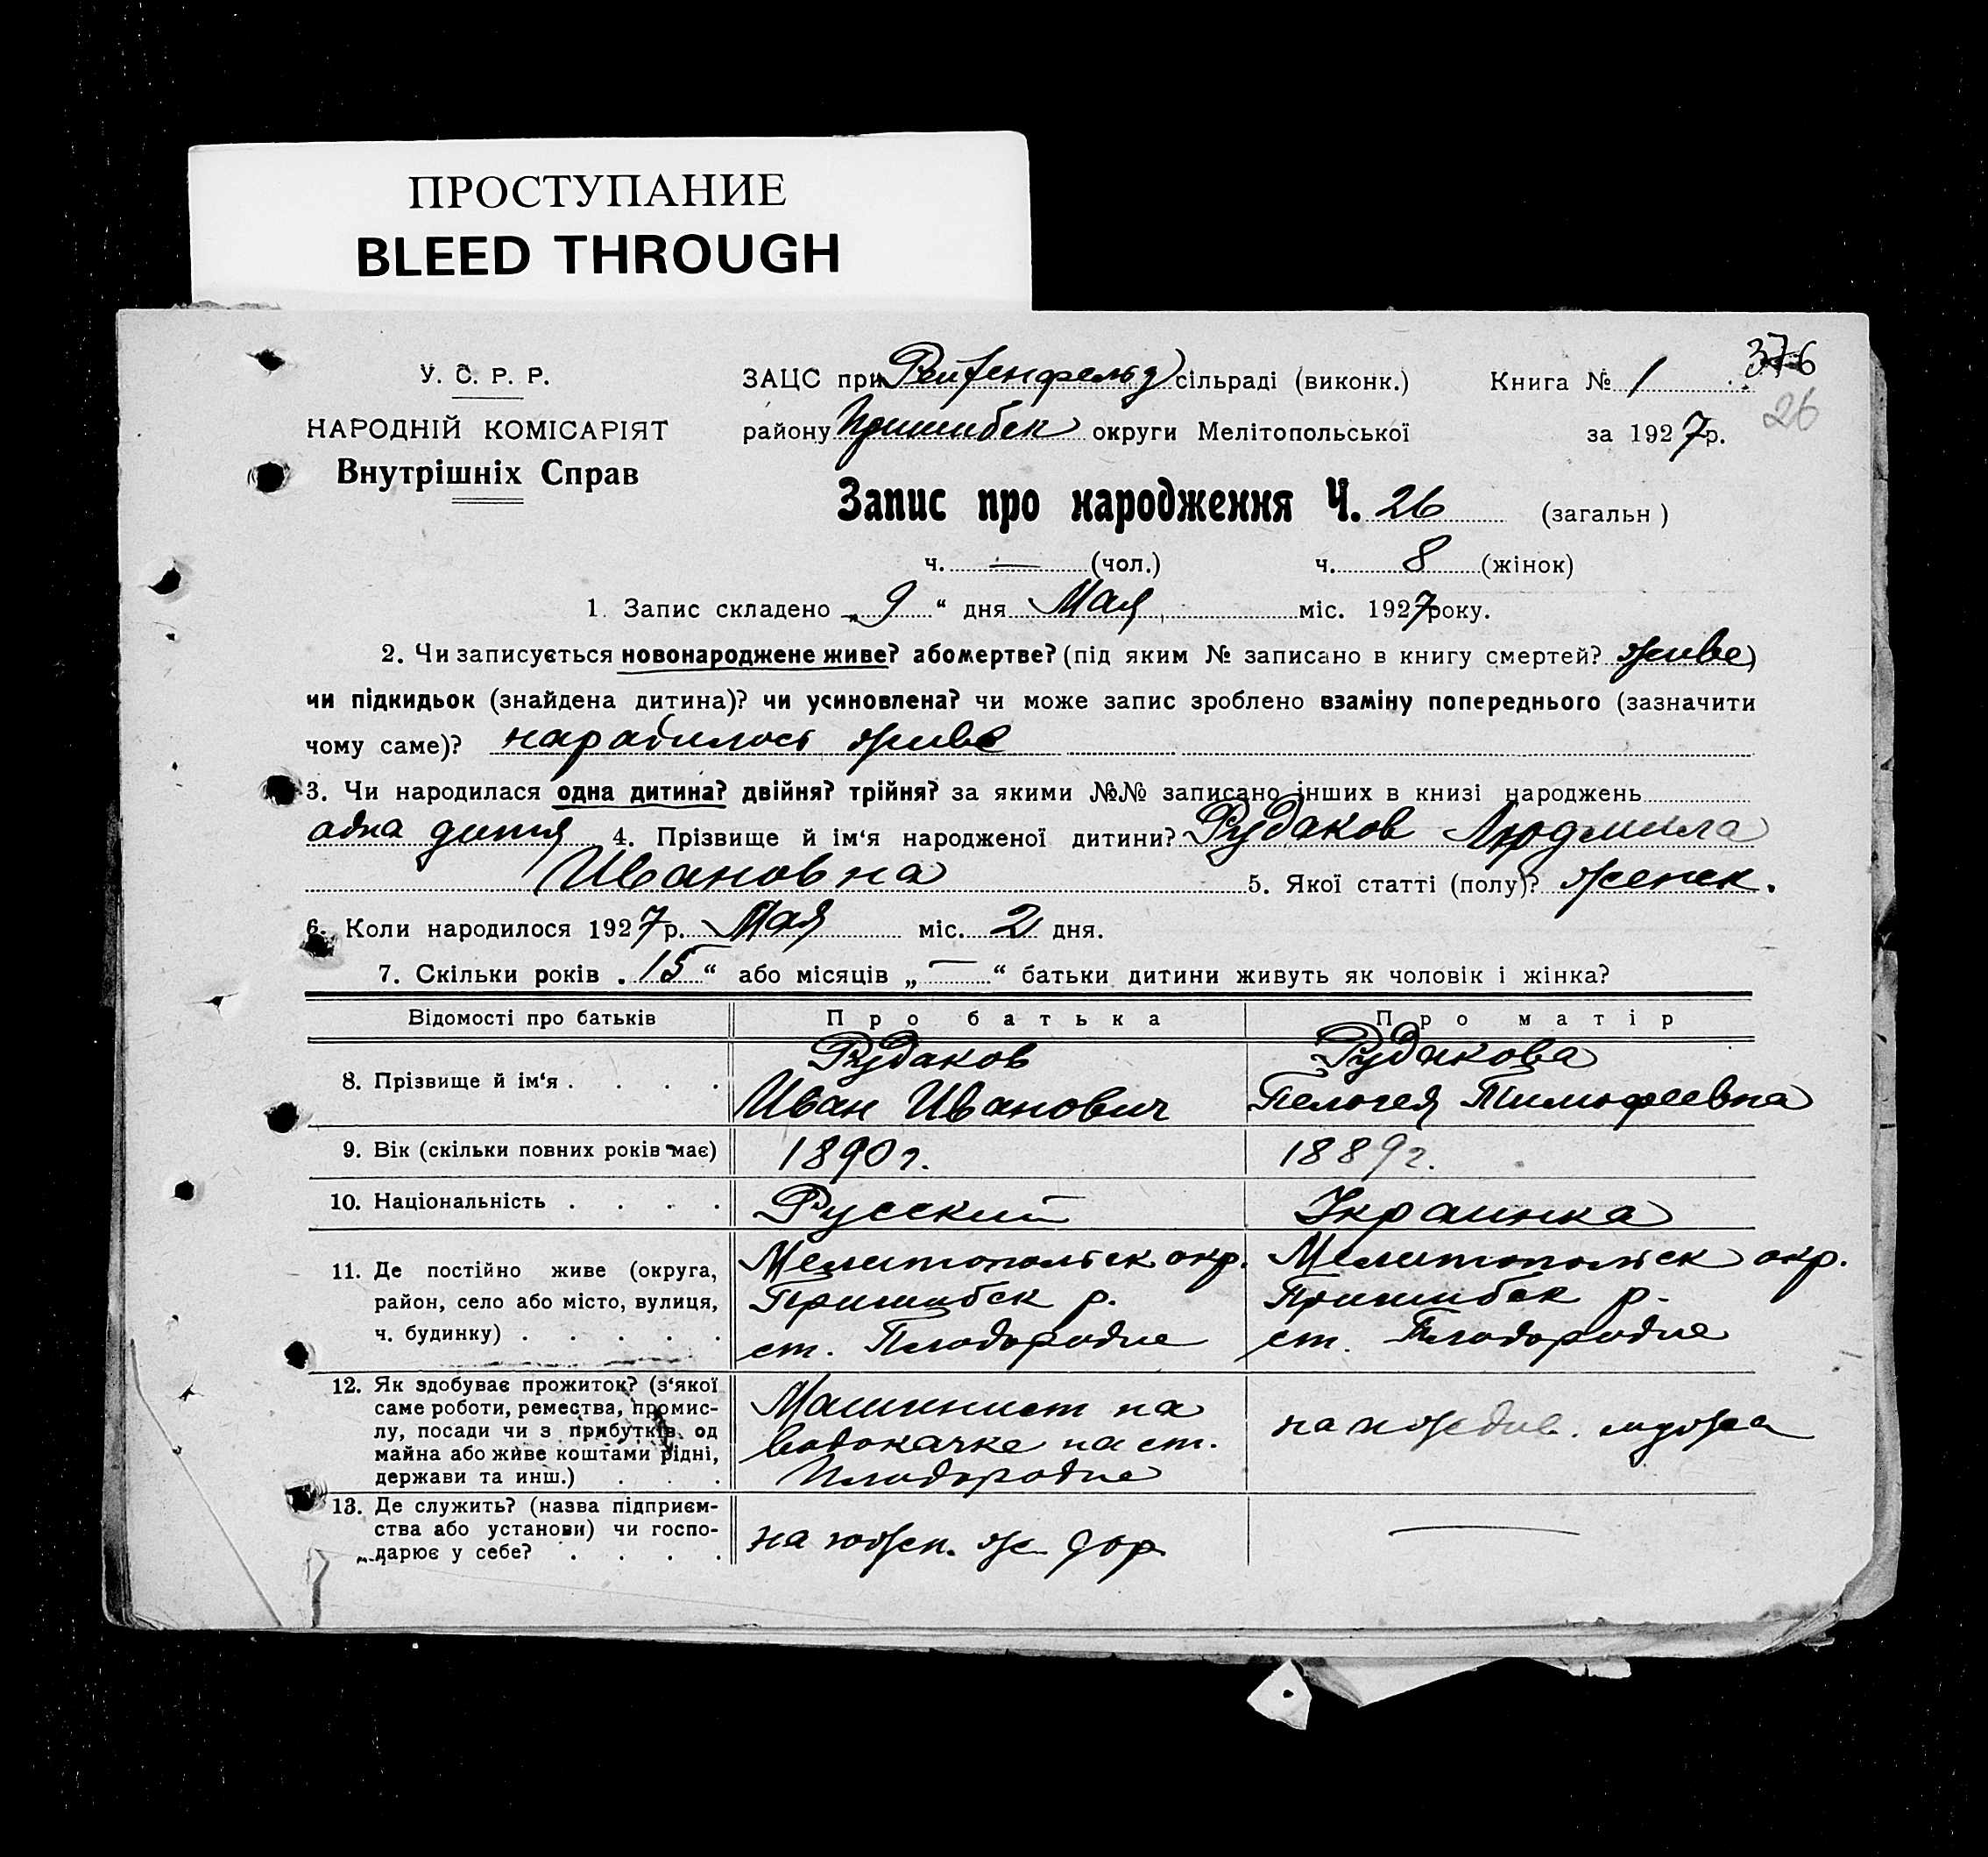 ПРОСТУПАНИЕ
BLEED THROUGH
376
У. С. Р. Р.
ЗАЦС при Рейхенфельд сільраді (виконк.) Книга № 1
26
НАРОДНІЙ КОМІСАРІЯТ
району Пришибск округи Мелітопольської за 1927 р.
Внутрішніх Справ
Запис про народження Ч. 26 (загальн )
ч. — (чол.) ч. 8 (жінок)
1. Запис складено „ 9 “ дня Мая міс. 1927 року.
2. Чи записується новонароджене живе? або мертве? (під яким № записано в книгу смертей? живе)
чи підкидьок (знайдена дитина)? чи усиновлена? чи може запис зроблено взаміну попереднього (зазначити
чому саме)? народилось живе
3. Чи народилася одна дитина? двійня? трійня? за якими №№ записано інших в книзі народжень
одна дитя 4. Прізвище й ім‘я народженої дитини? Рудаков Людмила
Ивановна 5. Якої статті (полу)? женск.
6. Коли народилося 1927 р. Мая міс. 2 дня.
7. Скільки років „ 15 “ або місяців „ — “ батьки дитини живуть як чоловік і жінка?
Відомості про батьків Про батька Про матір
8. Прізвище й ім‘я . . . . Рудаков Рудакова
Иван Иванович Пелогея Тимофеевна
9. Вік (скільки повних років має) 1890 г. 1889 г.
10. Національність . . . . Русский Украинка
11. Де постійно живе (округа, Мелитопольск окр. Мелитопольск окр.
район, село або місто, вулиця, Пришибск р. Пришибск р.
ч. будинку) . . . . . ст. Плодородне ст. Плодородне
12. Як здобуває прожиток? (з‘якої
саме роботи, ремества, промис- Машинист на
лу, посади чи з прибутків од водокачке на ст. на иждив. мужа
майна або живе коштами рідні, Плодородне
держави та инш.) . . .
13. Де служить? (назва підприєм-
ства або установи) чи госпо- на южн. ж. дор. —
дарює у себе? . . . .